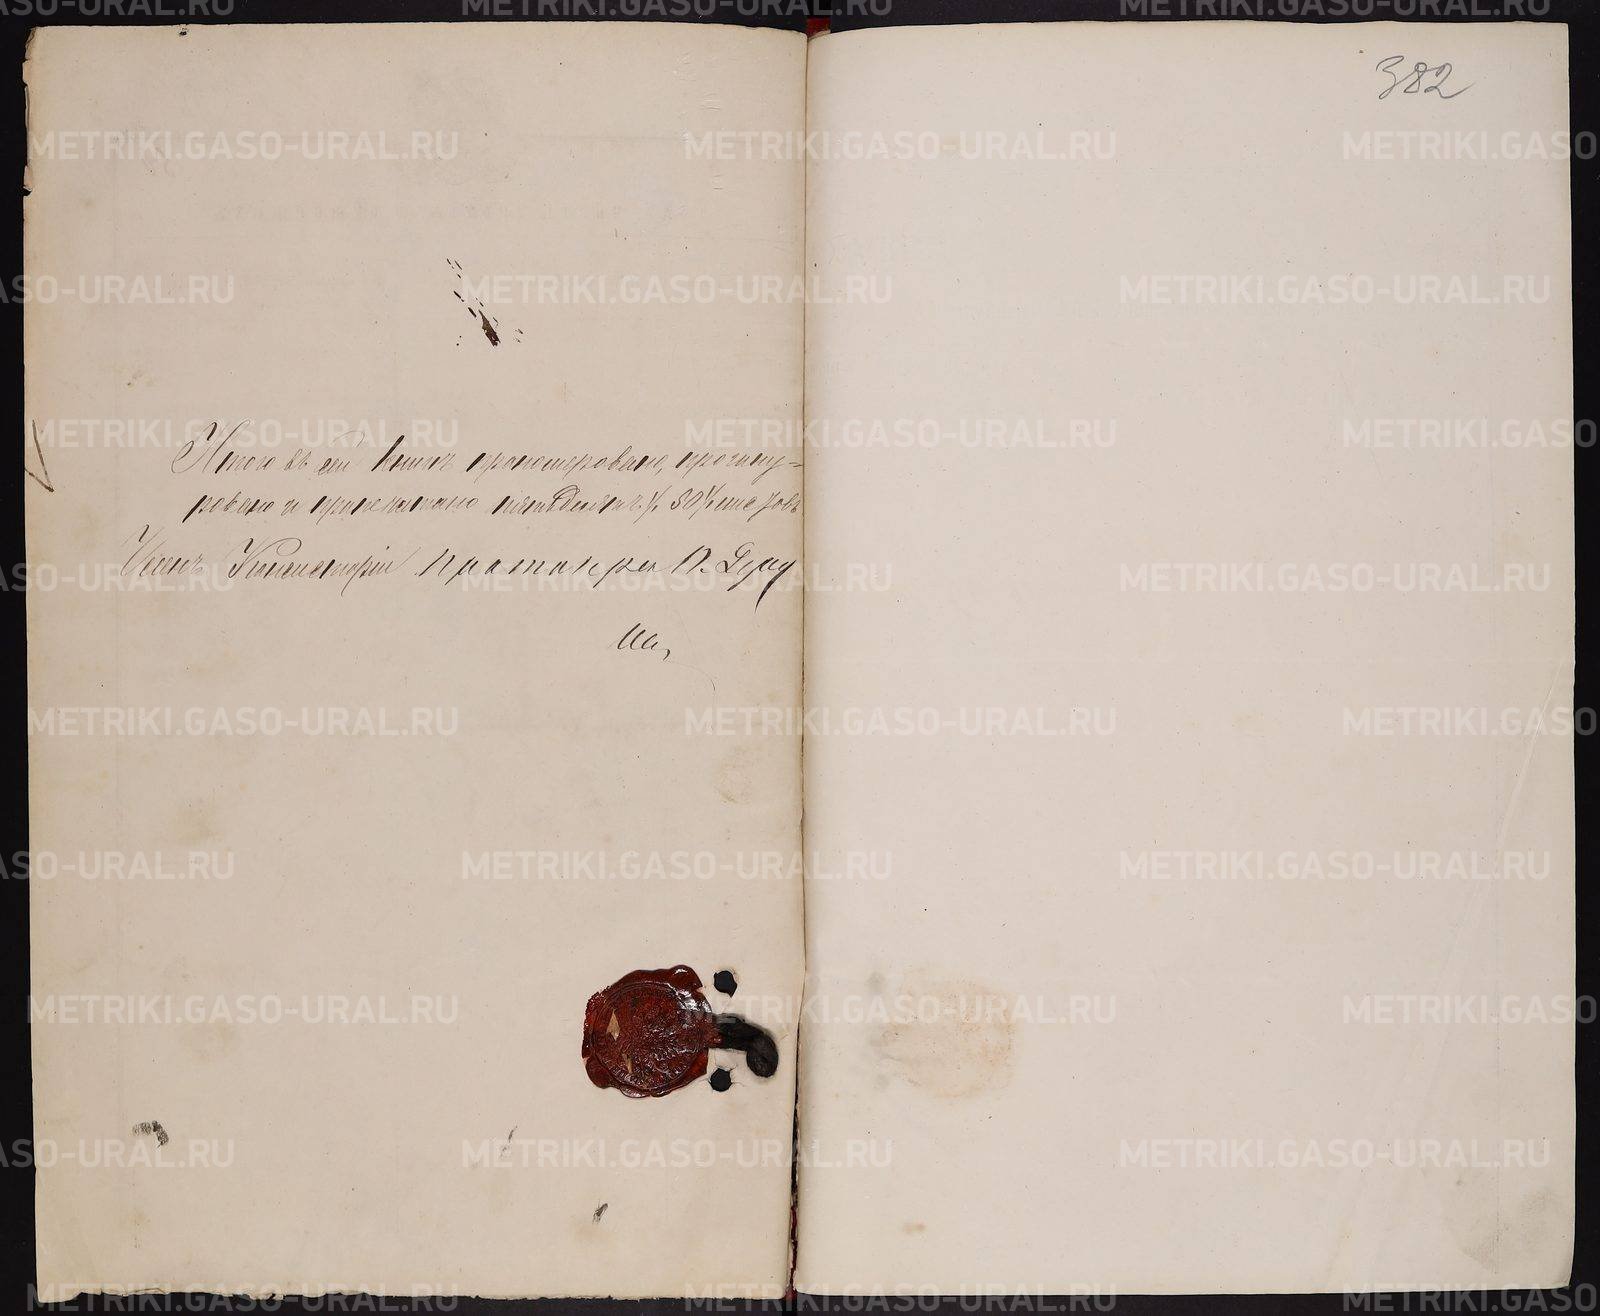 382
Итого въ сей книгѣ прономеровано, прошну=
ровано и припечатано пятьдесятъ /50/ листовъ
Членъ Консисторіи Протоіерей
METRIKI.GASO-URAL.RU